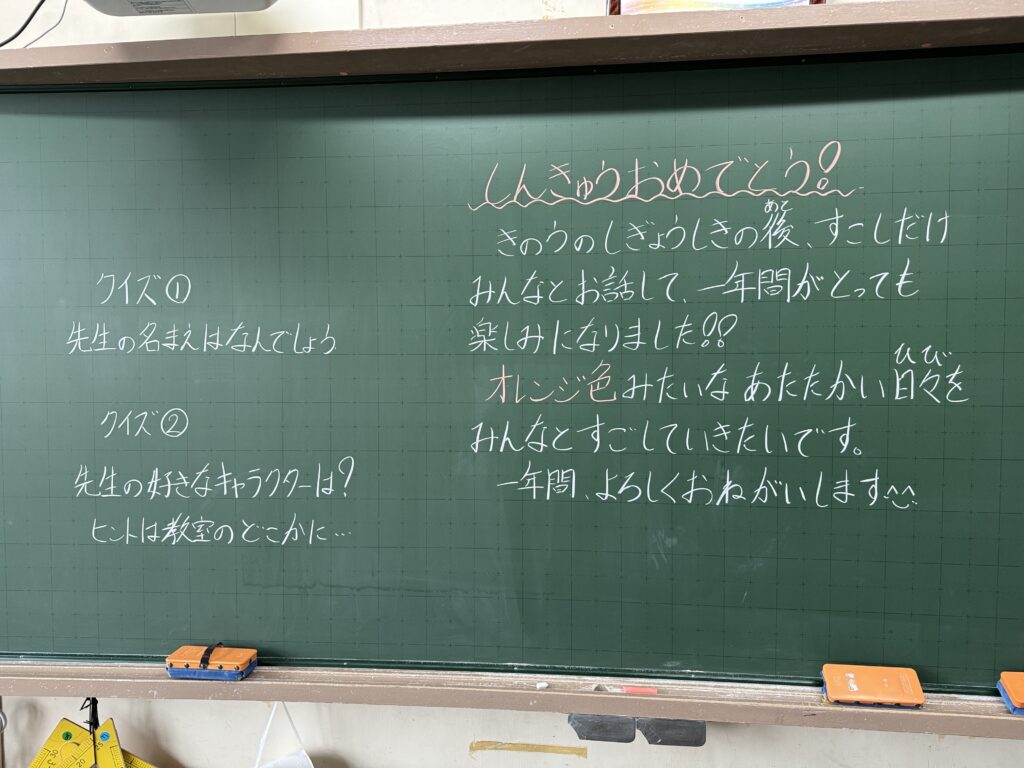 しんきゅうおめでとう!
きのうのしぎょうしきの後、すこしだけ
あと
みんなとお話して、一年間がとっても
楽しみになりました!!
オレンジ色みたいなあたたかい日々を
ひび
みんなとすごしていきたいです。
一年間、よろしくおねがいします^^
クイズ①
先生の名まえはなんでしょう
クイズ②
先生の好きなキャラクターは?
ヒントは教室のどこかに…